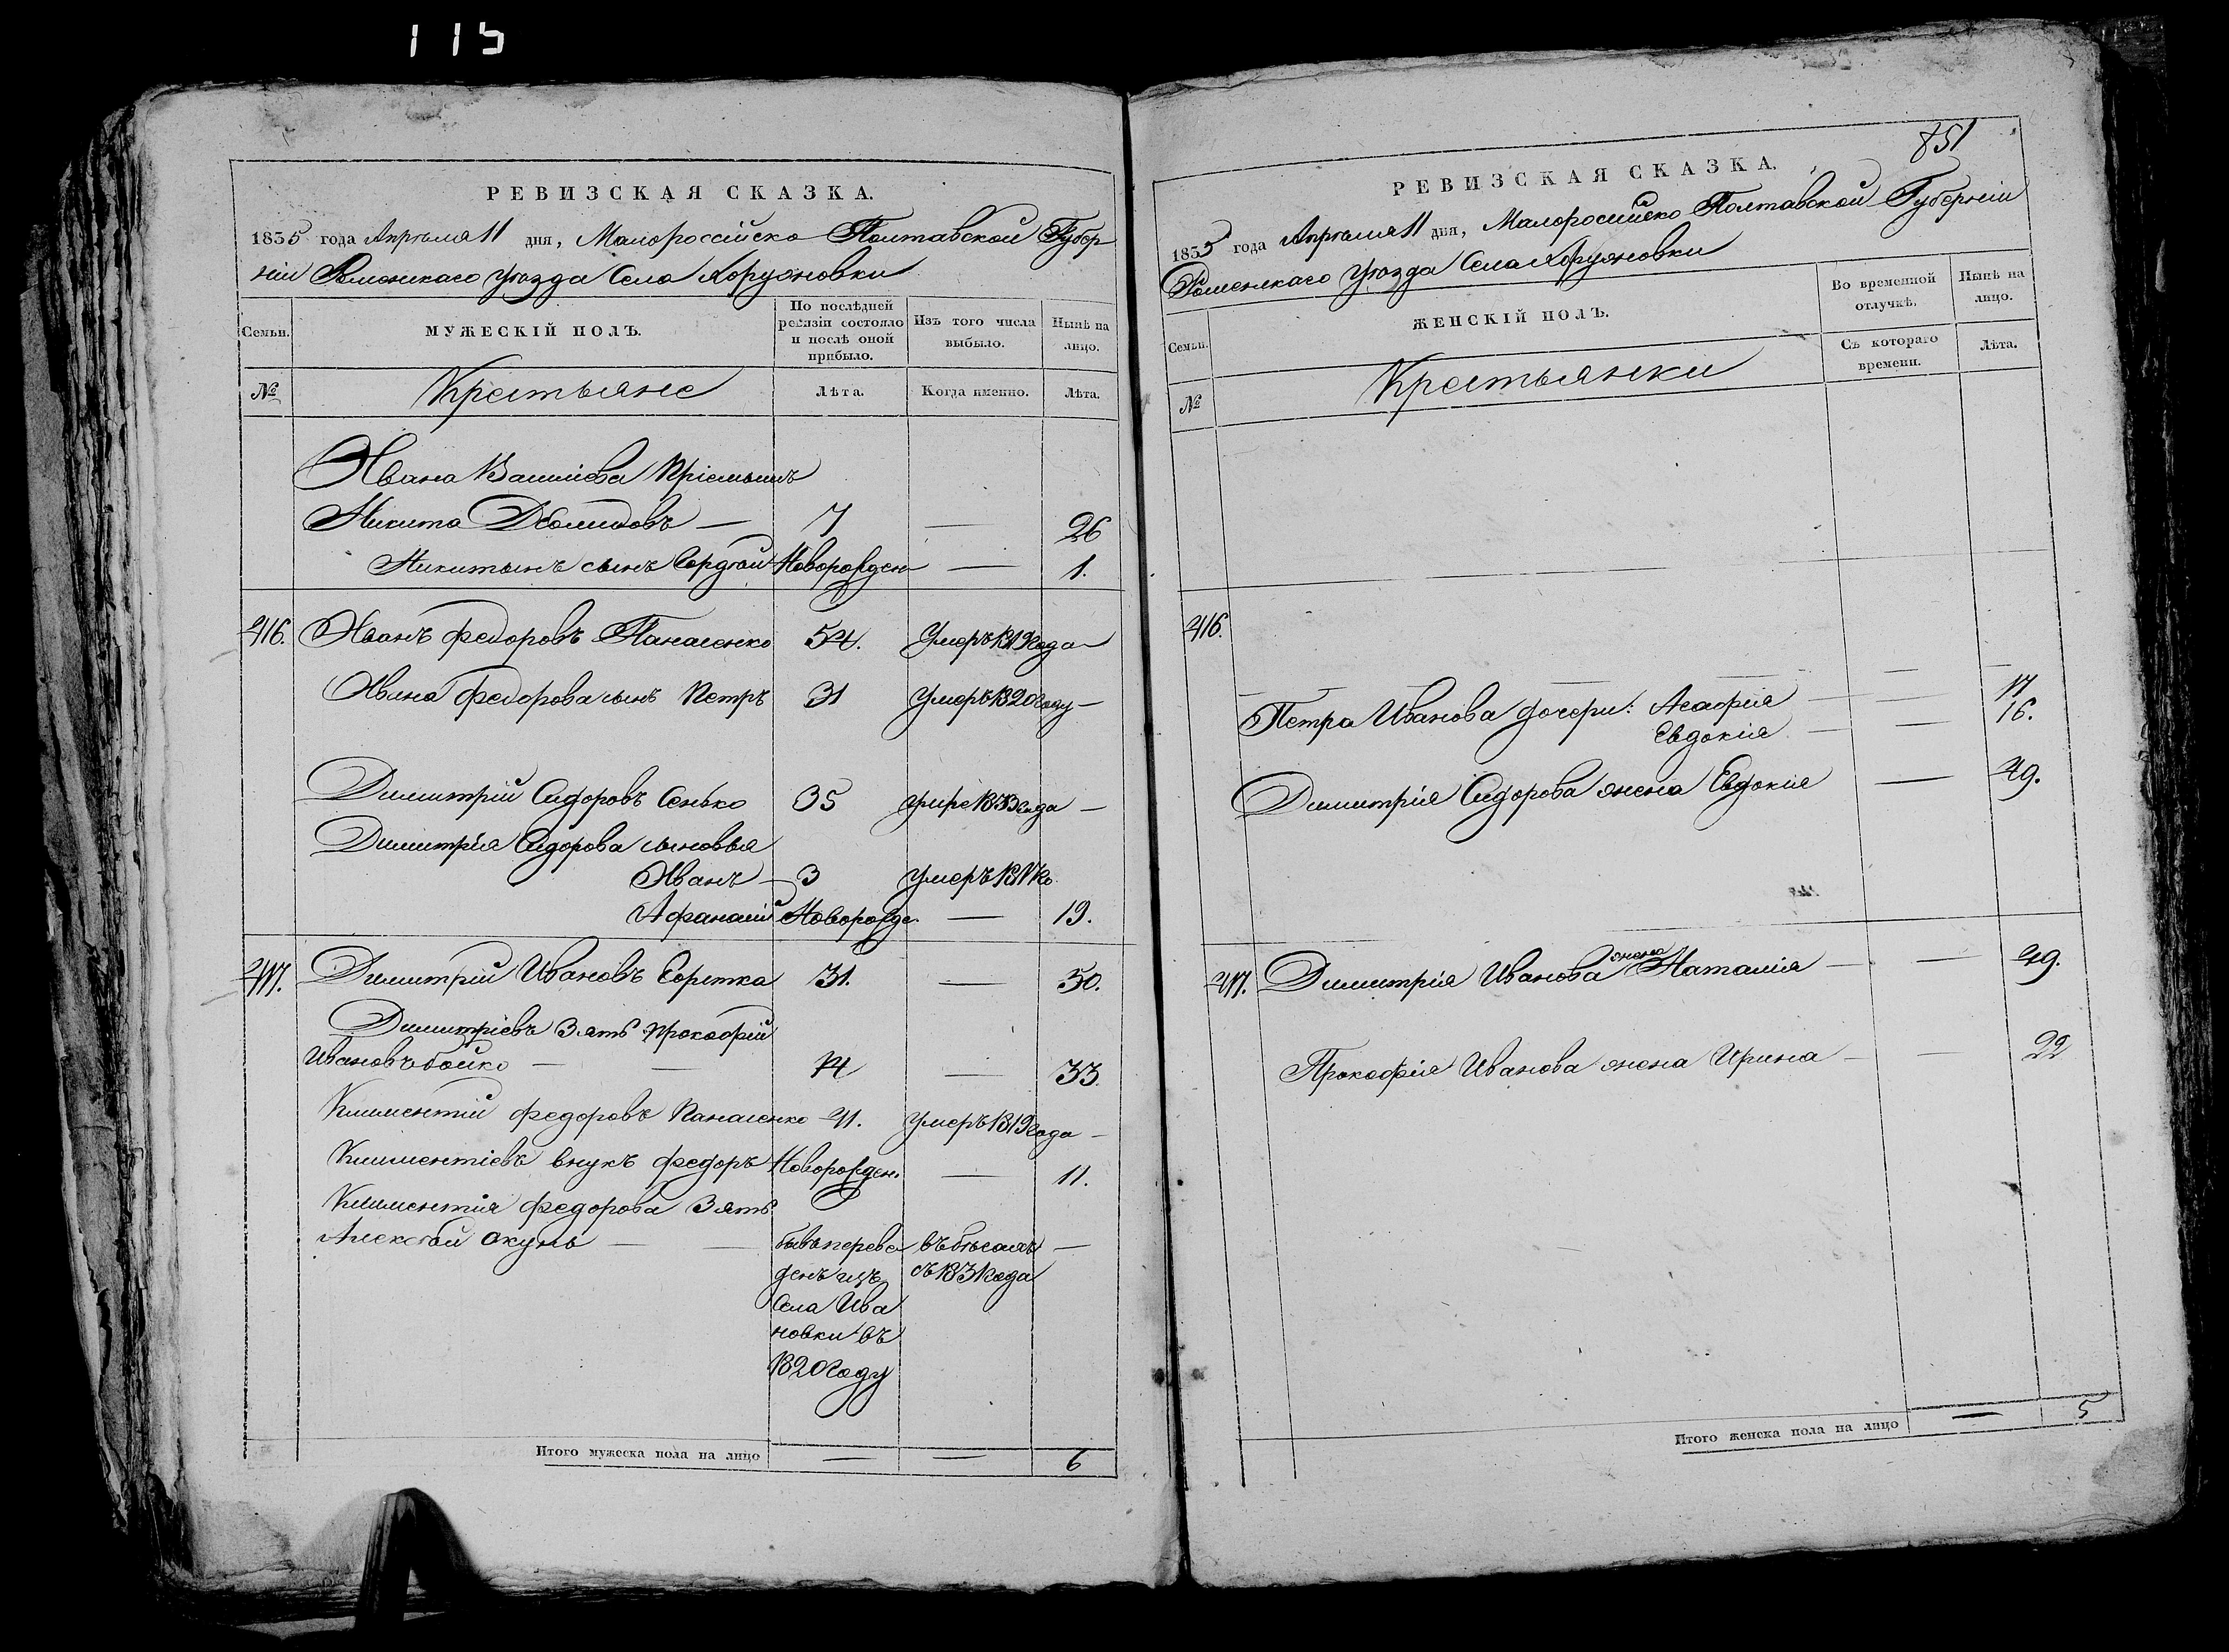 115
РЕВИЗСКАЯ СКАЗКА.
1835 года Апрѣля 11 дня, Малороссійско Полтавской Губер
ніи Роменскаго уѣзда Села Коружновки
Семьи.
МУЖЕСКІЙ ПОЛЪ.
По послѣдней ревизіи состояло и послѣ оной прибыло.
Изъ того числа выбыло.
Нынѣ на лицо.
№
Крестьяне
Лѣта.
Когда именно.
Лѣта.
Ивана Василіева Пріемышъ
Никита Демидовъ — 7 — 26
Никитынъ сынъ Сергѣй Новорожден — 1.
416. Иванъ Федоровъ Панасенко 54. Умеръ 1819 года —
Ивана Федорова сынъ Петръ 31 умеръ 1820 году —
Димитрій Сидоровъ Сенько 35 умре 1833 года —
Димитрія Сидорова сыновья
Иванъ — 3 умеръ 1817 го
Афанасій Новорожде. — 19.
417. Димитрій Ивановъ 31. — 50.
Димитріевъ Зять Прокофій
Ивановъ бойко — — 14 — 33.
Климентій Федоровъ Панасенко — 41. умеръ 1819 года —
Климентіевъ внукъ Федоръ Новорожден. — 11.
Климентія Федорова Зять
Алексѣй Окунь — — бывъ переве въ бѣгахъ —
денъ изъ съ 1831 года
Села Ива
новки въ
1820 году
Итого мужеска пола на лицо — — 6
851
РЕВИЗСКАЯ СКАЗКА.
1835 года Апрѣля 11 дня, Малоросийско Полтавской Губерніи
Роменскаго уѣзда Села Коружновки
Семьи.
ЖЕНСКІЙ ПОЛЪ.
Во временной отлучкѣ.
Нынѣ на лицо.
№
Крестьянки
Съ котораго времени.
Лѣта.
416.
Петра Иванова дочери: Агафія — — 17
Евдокія — — 16.
Димитрія Сидорова жена Евдокія — 49.
417. Димитрія Иванова жена Наталія — — 49.
Прокофія Иванова жена Ирина — — 22
Итого женска пола на лицо — 5